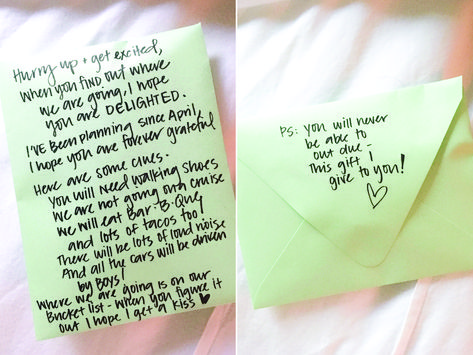 Hurry up + get excited,
when you find out where
we are going, I hope
you are DELIGHTED.
I'VE BEEN planning since April,
I hope you are forever grateful
Here are some clues.
You will need walking shoes
We are not going on a cruise
We will eat Bar-B-Que
and lots of tacos too!
There will be lots of loud noise
And all the cars will be driven
by Boys!
Where we are going is on our
Bucket list - when you figure it
out I hope I get a kiss ♥
PS: you will never
be able to
out due -
this gift I
give to you!
♡